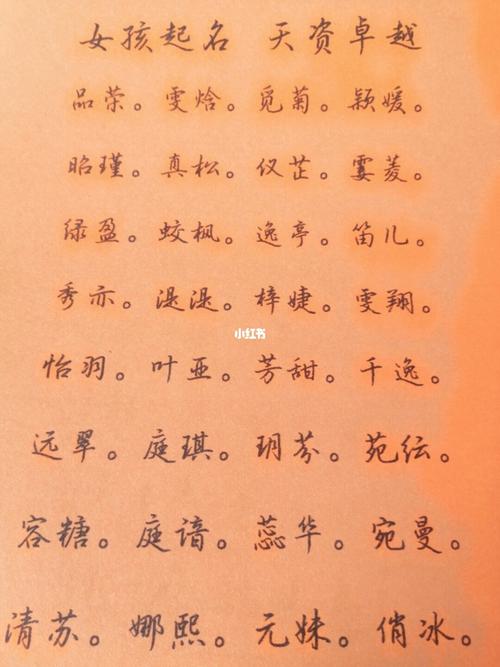 女孩起名 天资卓越
品荣。雯焓。觅菊。颖媛。
昭瑾。真松。仪芷。霎菱。
绿盈。蛟枫。逸亭。笛儿。
秀亦。湜湜。梓婕。雯翔。
小红书
怡羽。叶亚。芳甜。千逸。
远翠。庭琪。玥芬。苑纭。
容糖。庭谙。蕊华。宛曼。
清苏。娜熙。元妹。俏冰。